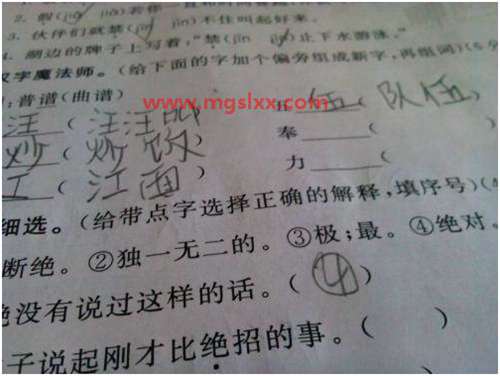 2. 假(jiǎ jià)若
3. 伙伴们就禁(jīn jìn)不住叫起好来。
4. 湖边的牌子上写着,“禁(jīn jìn)止下水游泳。”
汉字魔法师。(给下面的字加个偏旁组成新字,再组词)(6
:普谱(曲谱)
www.mgslxx.com
伍(队伍
汪(汪汪叫
奉 (
炒(炒饭
力 (
工(江面)
细选。(给带点字选择正确的解释,填序号)(4
断绝。②独一无二的。③极;最。④绝对。
绝没有说过这样的话。(④)
子说起刚才比绝招的事。( )